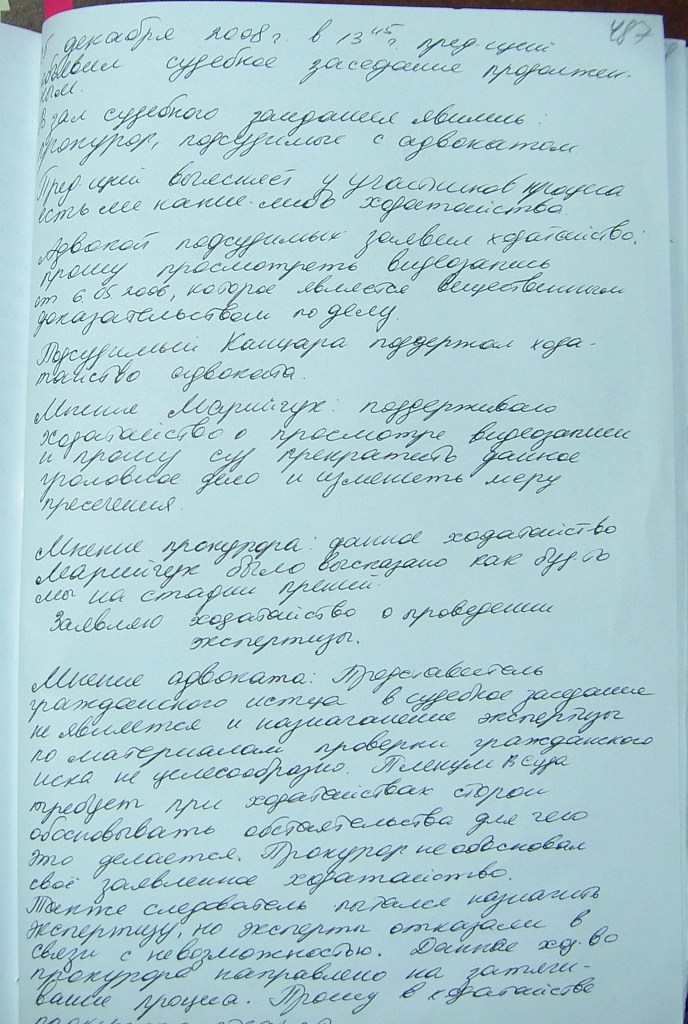 487
5 декабря 2008 г. в 13 45 г. пред-щий
объявил судебное заседание продолжен-
ным.
В зал судебного заседания явились:
прокурор, подсудимые с адвокатом
Пред-щий выясняет у участников процеса
есть ли какие-либо ходатайства.
Адвокат подсудимых заявил ходатайство:
прошу просмотреть видеозапись
от 6.05 2006, которое является вещественным
доказательством по делу.
Подсудимый Канцара поддержал хода-
тайство адвоката.
Мнения Марийчук: поддерживаю
ходатайство о просмотре видеозаписи
и прошу суд прекратить данное
уголовное дело и изменить меру
пресечения.
Мнение прокурора: данное ходатайство
Марийчук было высказано как будто
мы на стадии прений.
Заявляю ходатайство о проведении
экспертизы.
Мнение адвоката: Представитель
гражданского истца в судебное заседание
не является и назначение экспертизы
по материалам проверки гражданского
иска не целесообразно. Пленум В суда
требует при ходатайствах сторон
обосновывать обстоятельства для чего
это делается. Прокурор не обосновал
своё заявленное ходатайство.
Также следователь пытался назначить
экспертизу, но эксперты отказали в
связи с невозможностью. Данное ход-во
прокурора направлено на затяги-
вание процеса. Прошу в ходатайстве